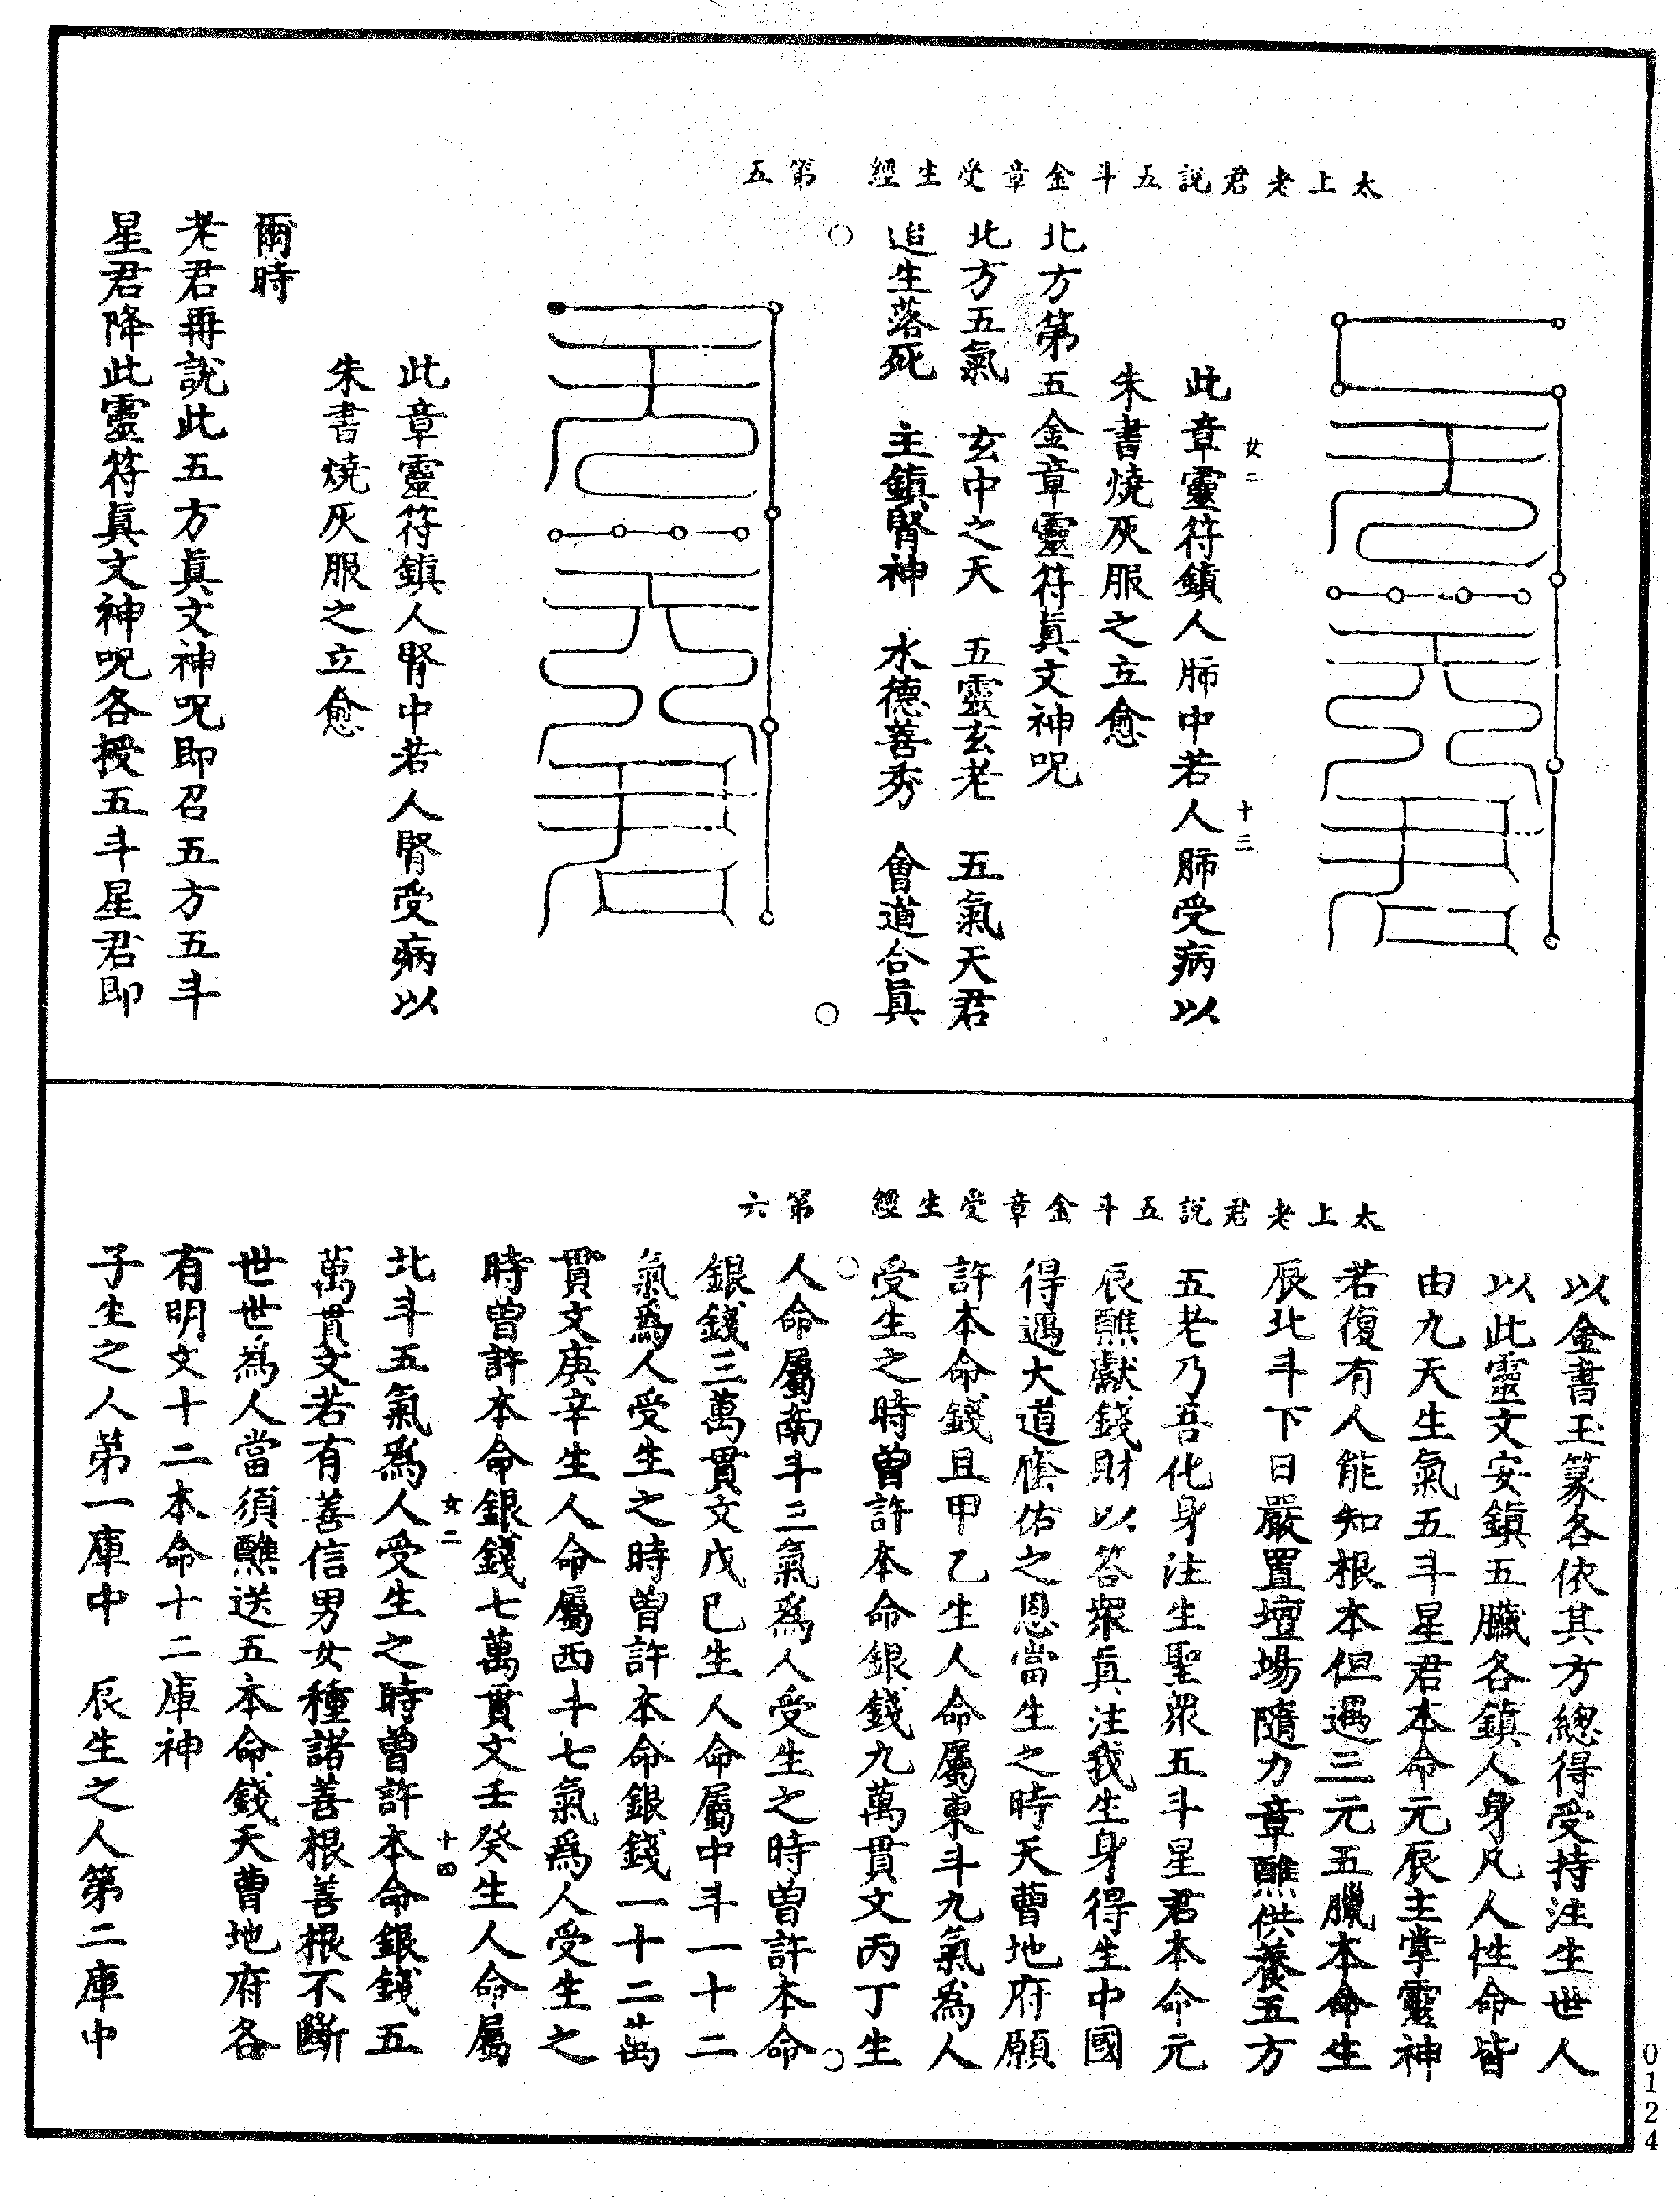 太上老君說五斗金章受生經　第五
此章靈符鎮人肺中若人肺受病以
朱書燒灰服之立愈
女二　十三
北方第五金章靈符眞文神呪
北方五氣　玄中之天　五靈玄老　五氣天君
追生落死　主鎮腎神　水德善秀　會道合眞
此章靈符鎮人腎中若人腎受病以
朱書燒灰服之立愈
爾時
老君再說此五方眞文神呪即召五方五斗
星君降此靈符眞文神呪各授五斗星君即
太上老君說五斗金章受生經　第六
以金書玉篆各依其方總得受持注生世人
以此靈文安鎮五臟各鎮人身凡人性命皆
由九天生氣五斗星君本命元辰主掌靈神
若復有人能知根本但遇三元五臘本命生
辰北斗下日嚴置壇場隨力章醮供養五方
五老乃吾化身注生聖衆五斗星君本命元
辰醮獻錢財以答衆眞注我生身得生中國
得遇大道廕佑之恩當生之時天曹地府願
許本命錢且甲乙生人命屬東斗九氣爲人
受生之時曾許本命銀錢九萬貫文丙丁生
人命屬南斗三氣爲人受生之時曾許本命
銀錢三萬貫文戊巳生人命屬中斗一十二
氣爲人受生之時曾許本命銀錢一十二萬
貫文庚辛生人命屬西斗七氣爲人受生之
時曾許本命銀錢七萬貫文壬癸生人命屬
女二　十四
北斗五氣爲人受生之時曾許本命銀錢五
萬貫文若有善信男女種諸善根善根不斷
世世爲人當須醮送五本命錢天曹地府各
有明文十二本命十二庫神
子生之人第一庫中　辰生之人第二庫中
0124